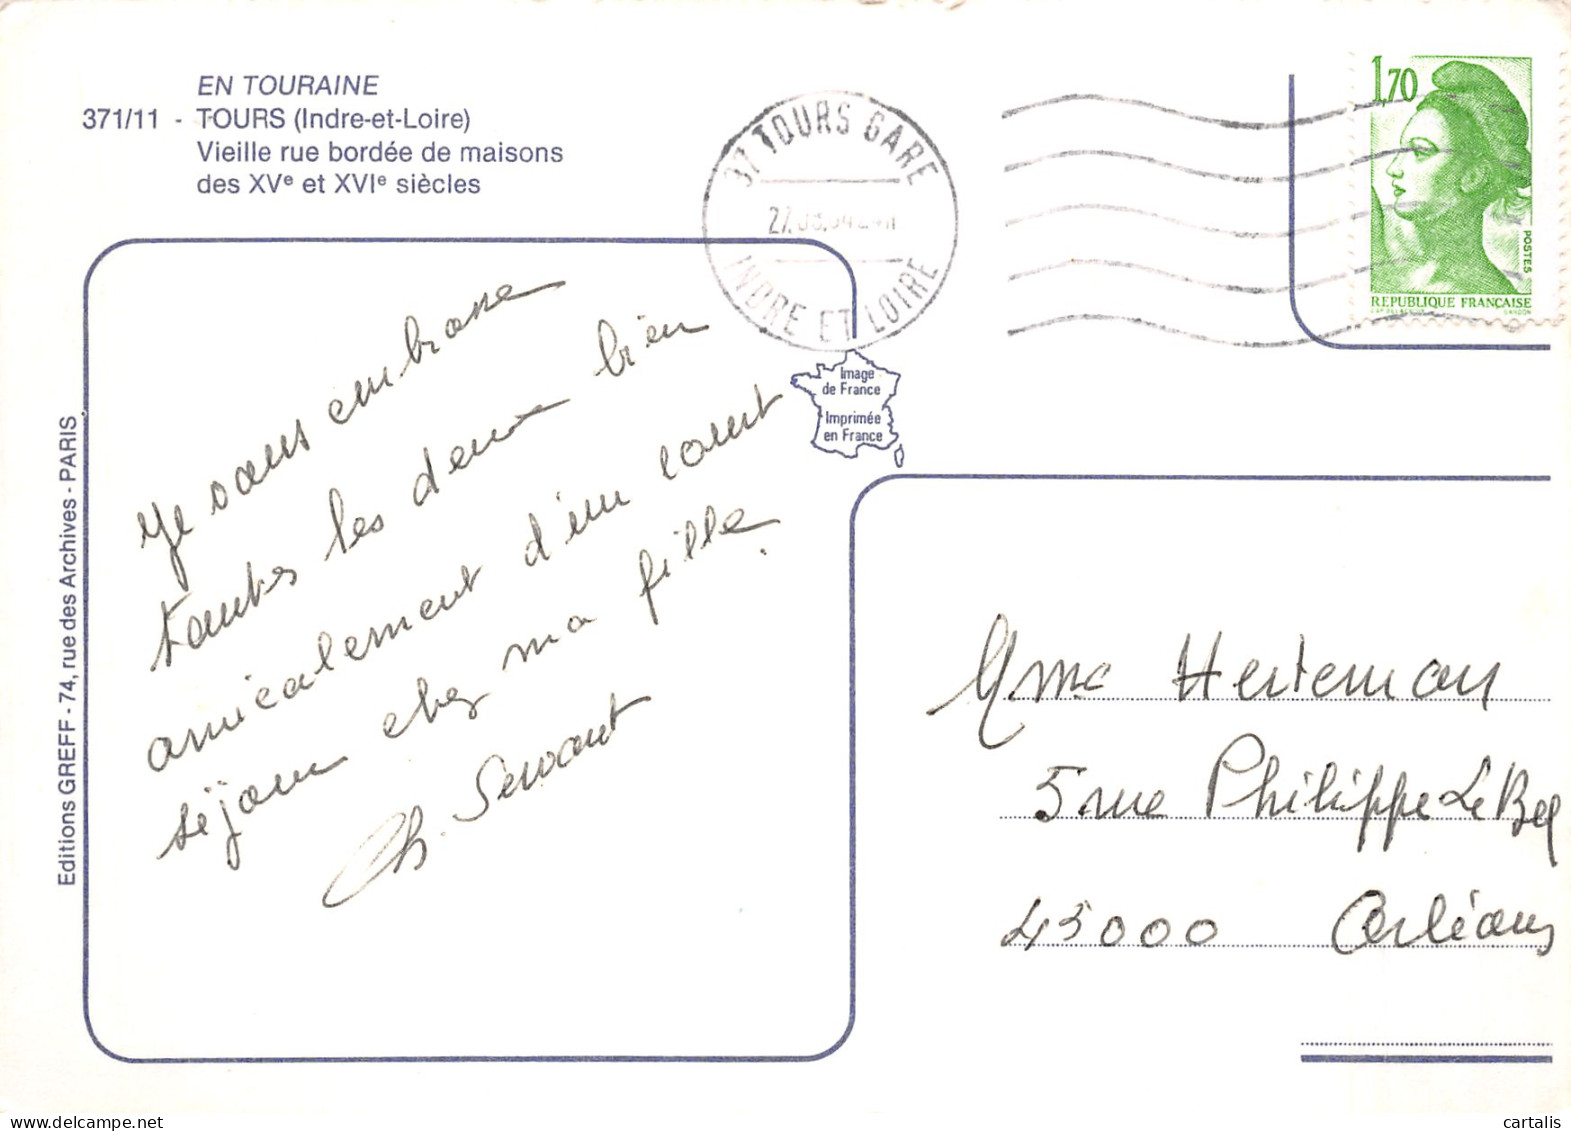 EN TOURAINE
371/11 - TOURS (Indre-et-Loire)
Vieille rue bordée de maisons
des XVe et XVIe siècles
37 TOURS GARE
INDRE ET LOIRE
1,70
POSTES
REPUBLIQUE FRANÇAISE
Image
de France
Imprimée
en France
Editions GREFF - 74, rue des Archives - PARIS
Je vous embrasse
toutes les deux bien
amicalement d'un court
séjour chez ma fille.
Ch. Servant
Mme Herteman
5 rue Philippe Le Bel
45000 Orléans
cartalis